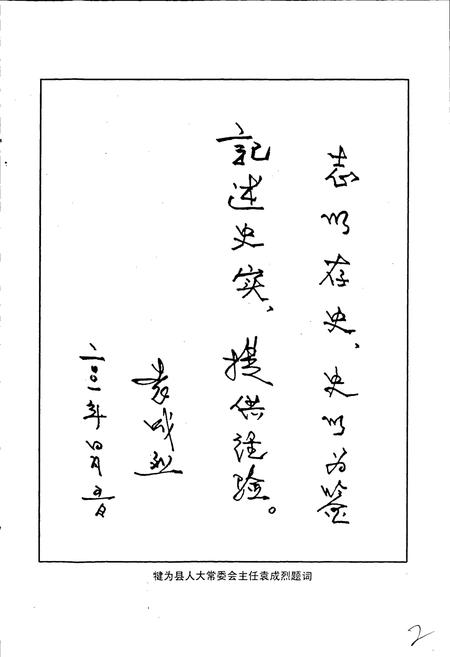 志以存史、史以为鉴
記述史实、提供经验。
袁成烈
二〇〇一年四月五日
犍为县人大常委会主任袁成烈题词
2